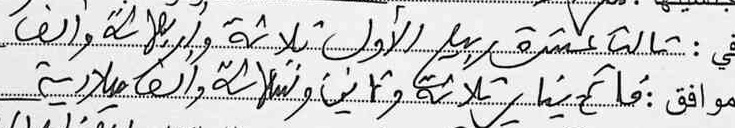 في : ثالث عشرة ربيع الأول ثلاثة وأربعمائة وألف
موافق : فاتح يناير ثلاثة وثمانين وتسعمائة وألف ميلادية